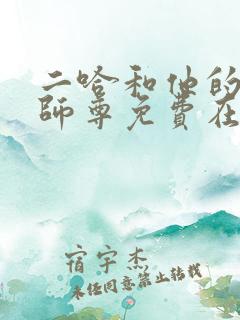 二哈和他的
師尊免費在
宿宇杰
未任同意禁止转载